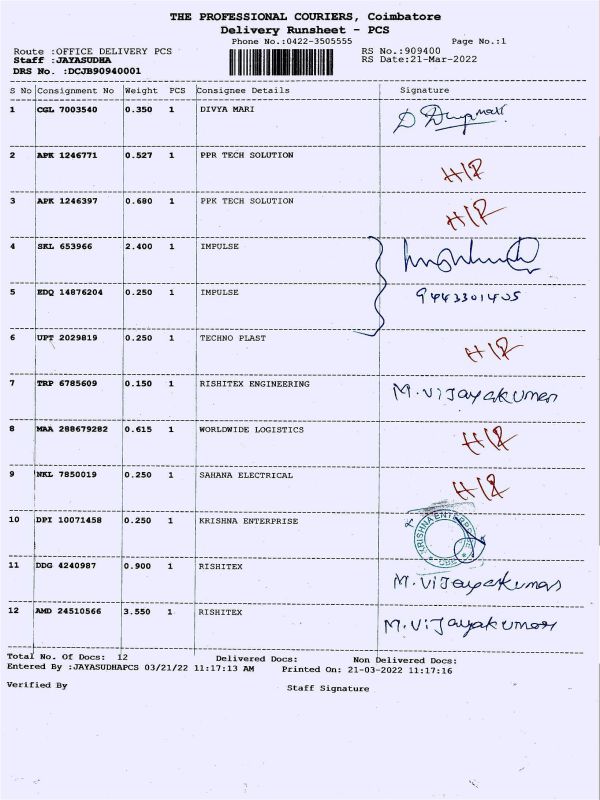 THE PROFESSIONAL COURIERS, Coimbatore
Delivery Runsheet - PCS
Phone No.:0422-3505555 Page No.:1
Route :OFFICE DELIVERY PCS RS No.:909400
Staff :JAYASUDHA RS Date:21-Mar-2022
DRS No. :DCJB90940001
S No Consignment No Weight PCS Consignee Details Signature
1 CGL 7003540 0.350 1 DIVYA MARI
2 APK 1246771 0.527 1 PPR TECH SOLUTION H/R
3 APK 1246397 0.680 1 PPK TECH SOLUTION H/R
4 SKL 653966 2.400 1 IMPULSE
5 EDQ 14876204 0.250 1 IMPULSE 9443301405
6 UPT 2029819 0.250 1 TECHNO PLAST H/R
7 TRP 6785609 0.150 1 RISHITEX ENGINEERING M.Vijayakumar
8 MAA 288679282 0.615 1 WORLDWIDE LOGISTICS H/R
9 NKL 7850019 0.250 1 SAHANA ELECTRICAL H/R
10 DPI 10071458 0.250 1 KRISHNA ENTERPRISE KRISHNA ENTERPRISE CBE
11 DDG 4240987 0.900 1 RISHITEX M.Vijayakumar
12 AMD 24510566 3.550 1 RISHITEX M.Vijayakumar
Total No. Of Docs: 12 Delivered Docs: Non Delivered Docs:
Entered By :JAYASUDHAPCS 03/21/22 11:17:13 AM Printed On: 21-03-2022 11:17:16
Verified By Staff Signature